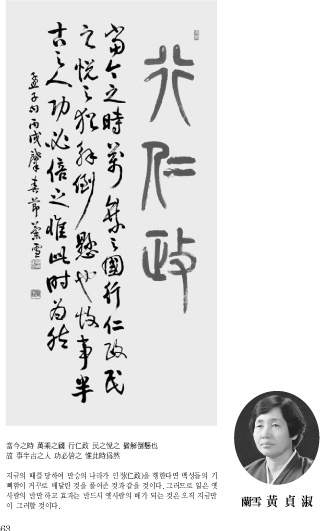 行仁政
當今之時萬乘之國行仁政民
之悅之猶解倒懸也故事半
古之人功必倍之惟此時為然
孟子句丙戌肇春節蘭雪
當今之時 萬乘之國 行仁政 民之悅之 猶解倒懸也
故 事半古之人 功必倍之 惟此時爲然
지금의 때를 당하여 만승의 나라가 인정(仁政)을 행한다면 백성들의 기
뻐함이 거꾸로 매달린 것을 풀어준 것과 같을 것이다. 그러므로 일은 옛
사람의 반만 하고 효과는 반드시 옛사람의 배가 되는 것은 오직 지금만
이 그러할 것이다.
蘭雪 黃貞淑
63